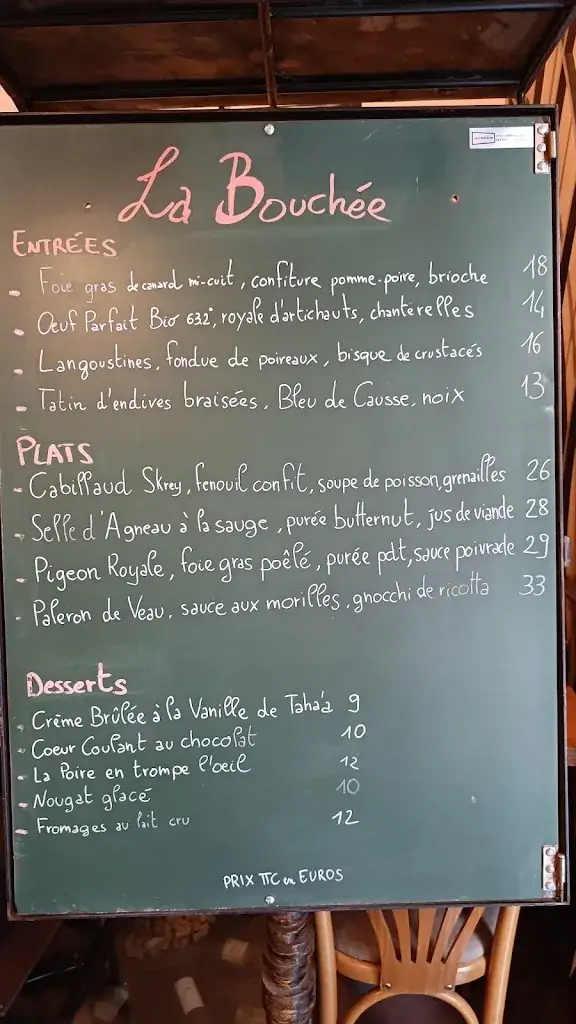 La Bouchée
ENTRÉES
- Foie gras de canard mi-cuit, confiture pomme-poire, brioche 18
- Oeuf Parfait Bio 632°, royale d'artichauts, chanterelles 14
- Langoustines, fondue de poireaux, bisque de crustacés 16
- Tatin d'endives braisées, Bleu de Causse, noix 13
PLATS
- Cabillaud Skrey, fenouil confit, soupe de poisson, grenailles 26
- Selle d'Agneau à la sauge, purée butternut, jus de viande 28
- Pigeon Royale, foie gras poêlé, purée pdt, sauce poivrade 29
- Paleron de Veau, sauce aux morilles, gnocchi de ricotta 33
Desserts
- Crème Brûlée à la Vanille de Taha'a 9
- Coeur Coulant au chocolat 10
- La Poire en trompe l'oeil 12
- Nougat glacé 10
- Fromages au lait cru 12
PRIX TTC en EUROS